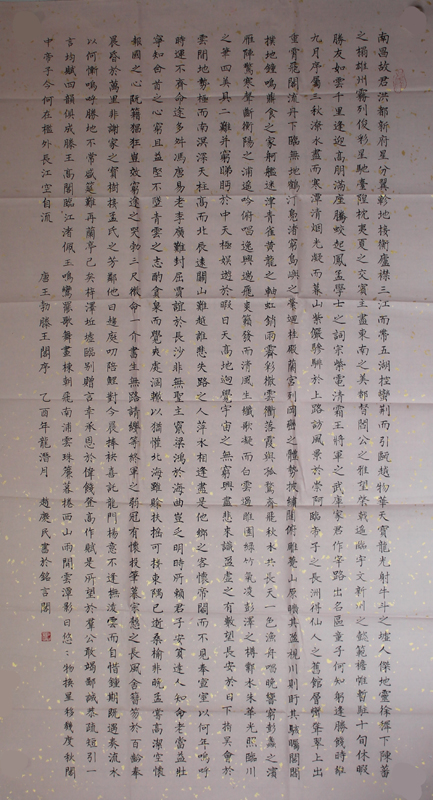 南昌故君洪都新府星分翼軫地接衡廬襟三江而帶五湖控蠻荊而引甌越物華天寶龍光射牛斗之墟人傑地靈徐孺下陳蕃
之榻雄州霧列俊彩星馳臺隍枕夷夏之交賓主盡東南之美都督閻公之雅望棨戟遙臨宇文新州之懿範襜帷暫駐十旬休暇
勝友如雲千里逢迎高朋滿座騰蛟起鳳孟學士之詞宗紫電清霜王將軍之武庫家君作宰路出名區童子何知躬逢勝餞時維
九月序屬三秋潦水盡而寒潭清煙光凝而暮山紫儼驂騑於上路訪風景於崇阿臨帝子之長洲得仙人之舊館層巒聳翠上出
重霄飛閣流丹下臨無地鶴汀鳧渚窮島嶼之縈迴桂殿蘭宮列岡巒之體勢披繡闥俯雕甍山原曠其盈視川則盱其駭矚閭閻
撲地鐘鳴鼎食之家舸艦迷津青雀黃龍之軸虹銷雨霽彩徹雲衢落霞與孤鶩齊飛秋水共長天一色漁舟唱晚響窮彭蠡之濱
雁陣驚寒聲斷衡陽之浦遙吟俯暢逸興遄飛爽籟發而清風生纖歌凝而白雲遏睢園綠竹氣凌彭澤之樽鄴水朱華光照臨川
之筆四美具二難并窮睇眄於中天極娛遊於暇日天高地迥覺宇宙之無窮興盡悲來識盈虛之有數望長安於日下指吳會於
雲間地勢極而南溟深天柱高而北辰遠關山難越誰悲失路之人萍水相逢盡是他鄉之客懷帝閽而不見奉宣室以何年嗚呼
時運不齊命途多舛馮唐易老李廣難封屈賈誼於長沙非無聖主竄梁鴻於海曲豈乏明時所賴君子安貧達人知命老當益壯
寧知白首之心窮且益堅不墜青雲之志酌貪泉而覺爽處涸轍以猶懽北海雖賒扶搖可接東隅已逝桑榆非晚孟嘗高潔空懷
報國之心阮籍猖狂豈效窮途之哭勃三尺微命一介書生無路請纓等終軍之弱冠有懷投筆慕宗愨之長風舍簪笏於百齡奉
晨昏於萬里非謝家之寶樹接孟氏之芳鄰他日趨庭叨陪鯉對今晨捧袂喜託龍門楊意不逢撫凌雲而自惜鍾期既遇奏流水
以何慚嗚呼勝地不常盛筵難再蘭亭已矣梓澤坵墟臨別贈言幸承恩於偉餞登高作賦是所望於羣公敢竭鄙誠恭疏短引一
言均賦四韻俱成滕王高閣臨江渚佩玉鳴鸞罷歌舞畫棟朝飛南浦雲珠簾暮捲西山雨閒雲潭影日悠:物換星移幾度秋閣
中帝子今何在檻外長江空自流 唐王勃滕王閣序 乙酉年龍潛月 趙慶民書於銘言閣